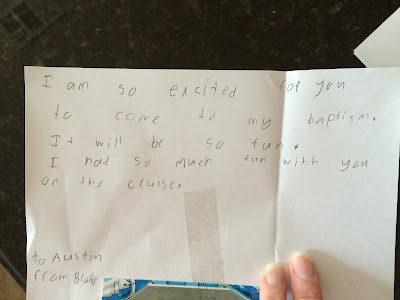 I am so excited for you
to come to my baptism.
It will be so fun.
I had so much fun with you
on the cruise.
to Austin
from Blake